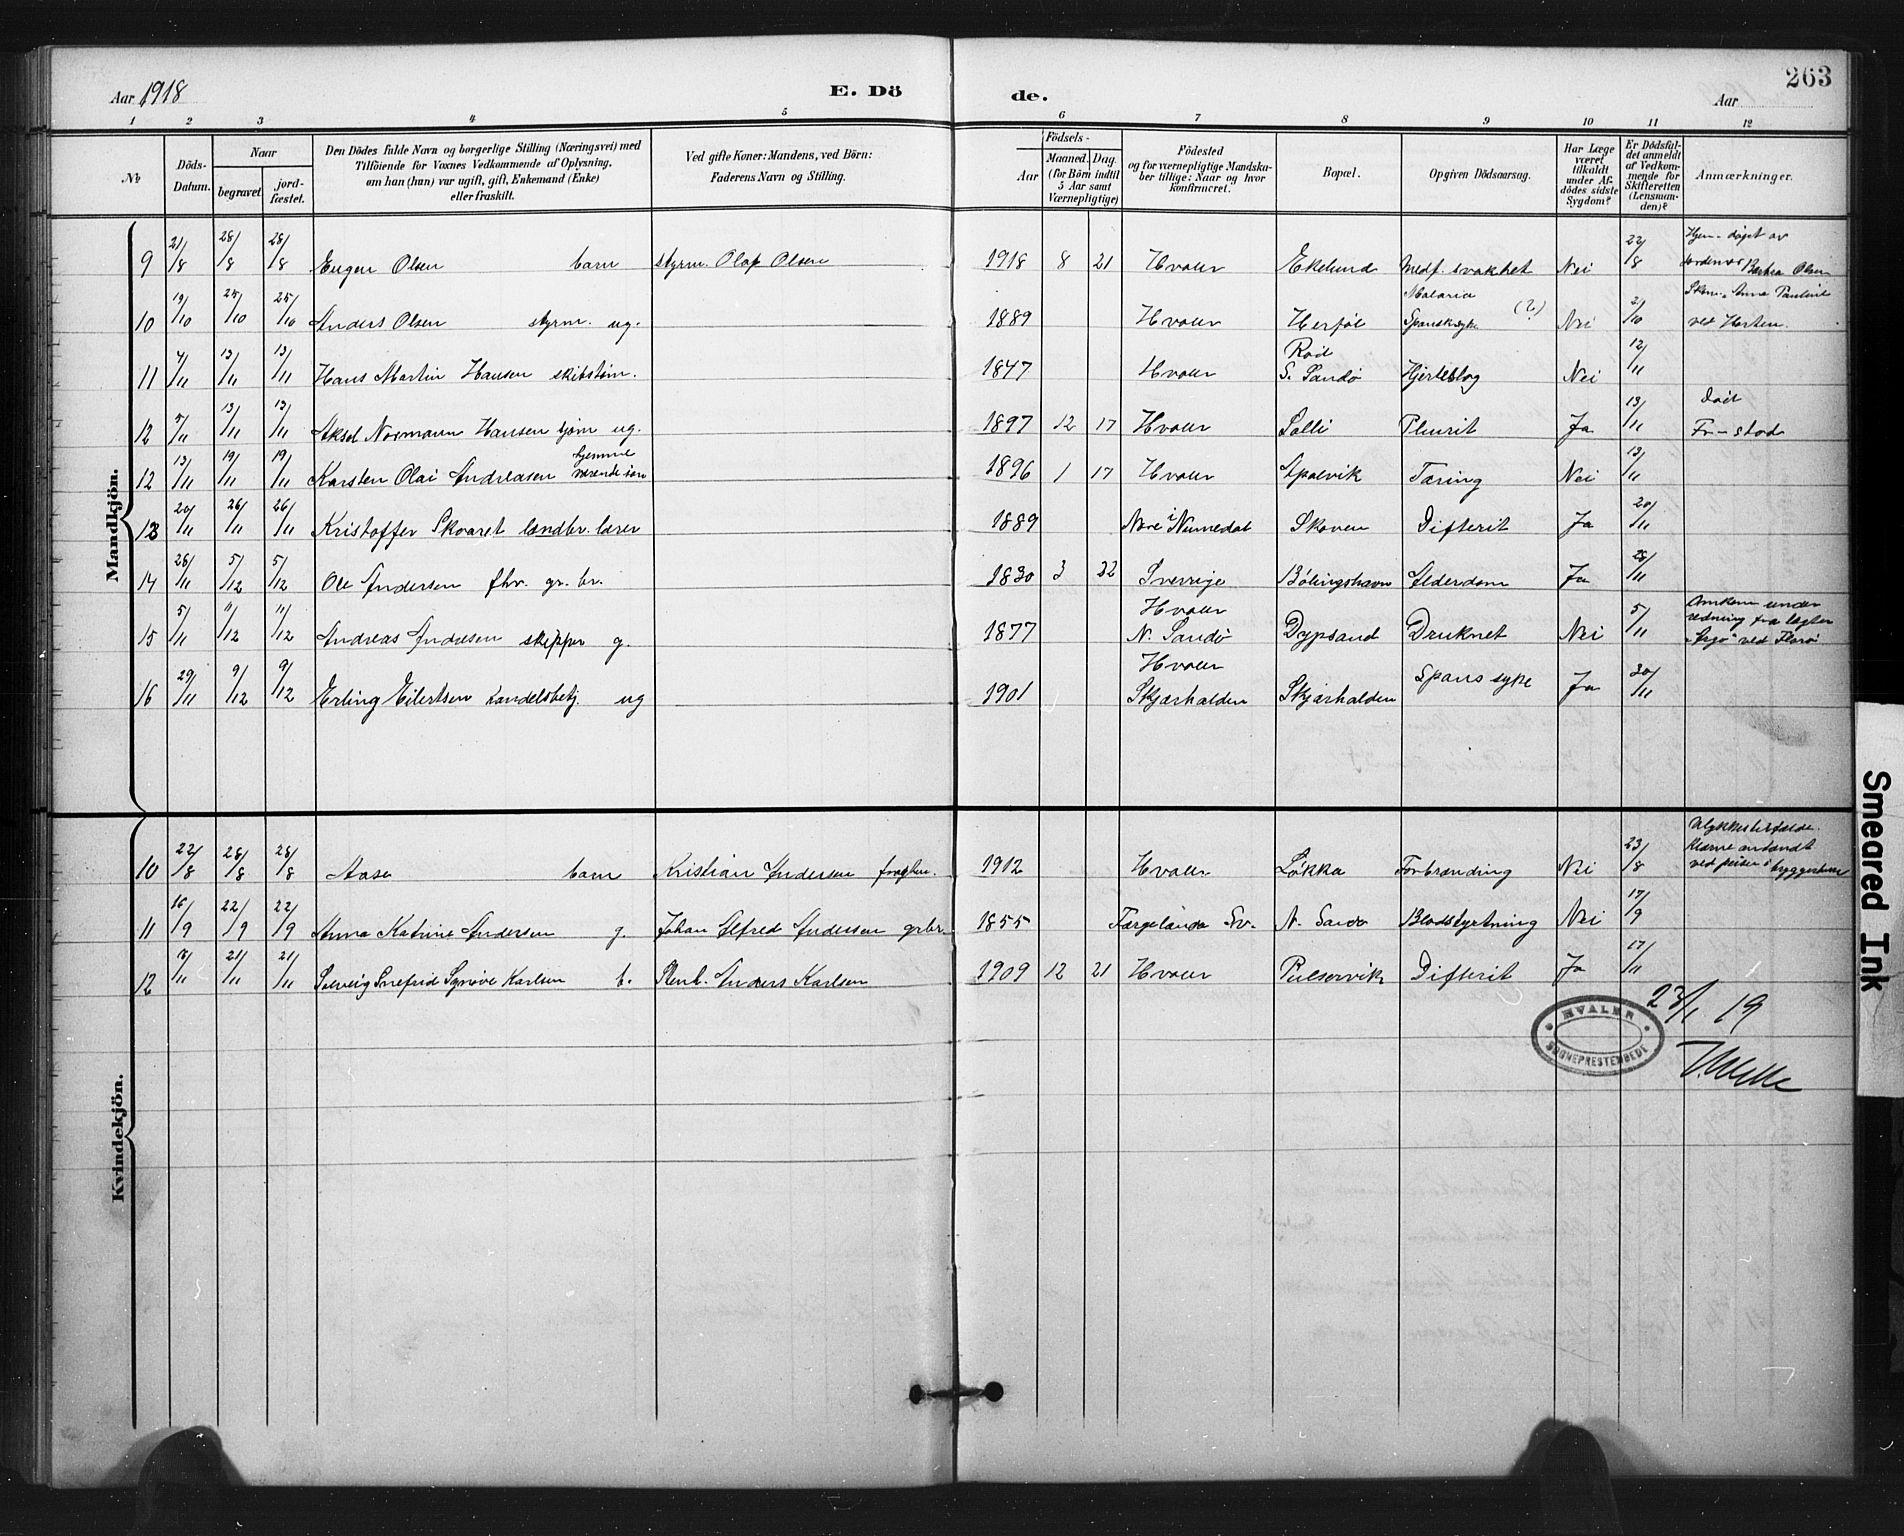 Aar 1918 E. Dö de. Aar 263
1 2 3 4 5 6 7 8 9 10 11 12
№ Döds-Datum. Naar begravet. jord-fæstet. Den Dödes fulde Navn og borgerlige Stilling (Næringsvei) med Tilföiende for Voxnes Vedkommende af Oplysning, om han (hun) var ugift, gift, Enkemand (Enke) eller fraskilt. Ved gifte Koner: Mandens, ved Börn: Faderens Navn og Stilling. Födsels- Aar Maaned. Dag. (for Börn indtil 5 Aar samt Værnepligtige) Födested og for værnepligtige Mandskaber tillige: Naar og hvor konfirmeret. Bopæl. Opgiven Dödsaarsag. Har Læge været tilkaldt under Afdödes sidste Sygdom? Er Dödsfaldet anmeldt af Vedkommende for Skifteretten (Lensmanden)? Anmærkninger.
Mandkjön.
9 21/8 28/8 28/8 Eugen Olsen barn styrm. Olaf Olsen 1918 8 21 Hvaler Ekelund Medf. svakhet Nei 22/8 Hjem-døpt av Jordemor Olsen
10 19/10 25/10 25/10 Anders Olsen styrm. ug. 1889 Hvaler Herføl Malaria Spansksyke (?) Nei 21/10 Anna Pauline ved Horten.
11 4/11 13/11 13/11 Hans Martin Hansen skibstøm. 1847 Hvaler Rød S. Sandø Hjerteslag Nei 12/11
12 5/11 13/11 13/11 Aksel Normann Hansen sjøm ug. 1897 12 17 Hvaler Solli Pleurit Ja 13/11 Død Fr-stad
12 13/11 19/11 19/11 Karsten Olai Andreasen hjemmeværende søn 1896 1 17 Hvaler Spalvik Tæring Nei 13/11
13 20/11 26/11 26/11 Kristoffer Skvaret landbr. lærer 1889 Nore i Numedal Skoven Difterit Ja 20/11
14 26/11 5/12 5/12 Ole Andersen fhv. gr. br. 1830 3 22 Sverrige Bølingshavn Alderdom Ja 28/11
15 5/11 11/12 11/12 Andreas Andresen skipper g. 1877 Hvaler N. Sandø Dypsand Druknet Nei 5/11 Omkom under redning fra lægter ved Florø
16 29/11 9/12 9/12 Erling Eilertsen handelsbetj. ug 1901 Hvaler Skjærhalden Skjærhalden Spansk syke Ja 30/11
Kvindekjön.
10 22/8 28/8 28/8 Aase barn Kristian Andersen 1912 Hvaler Løkka Forbrænding Nei 23/8 Ulykkestilfælde. Klærne antændt ved peisen i bryggerhuset
11 16/9 22/9 22/9 Anna Katrine Andersen g. Johan Alfred Andersen grbr. 1855 Færgelanda Sv. N. Sandø Blodstyrtning Nei 17/9
12 21/11 21/11 Solveig Snefrid Synøve Karlsen b. Stenh. Anders Karlsen 1909 12 21 Hvaler Pulservik Difterit Ja 17/11
23/1 19
HVALER SOGNEPRESTEMBEDE
Smeared Ink